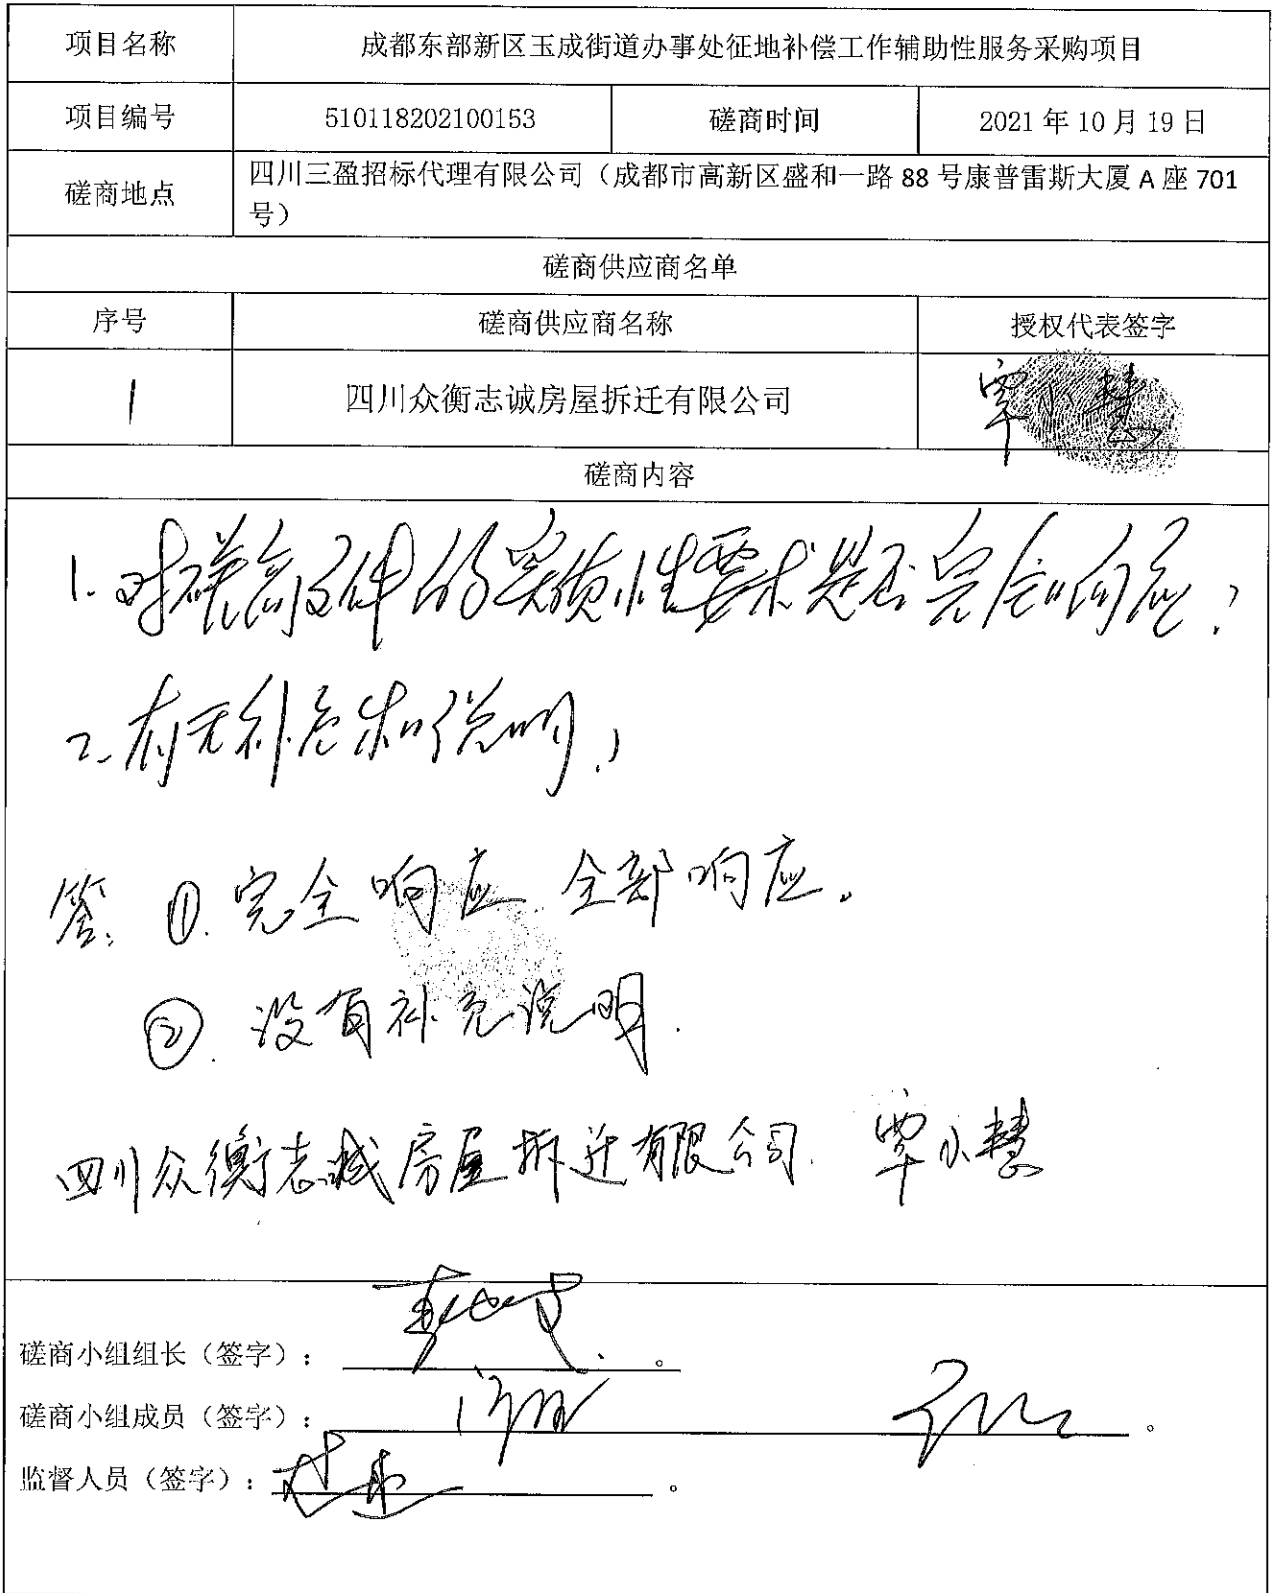 项目名称 成都东部新区玉成街道办事处征地补偿工作辅助性服务采购项目
项目编号 510118202100153 磋商时间 2021年10月19日
磋商地点 四川三盈招标代理有限公司（成都市高新区盛和一路88号康普雷斯大厦A座701
号）
磋商供应商名单
序号 磋商供应商名称 授权代表签字
1 四川众衡志诚房屋拆迁有限公司 覃小慧
磋商内容
1.对磋商文件的实质性要求是否完全响应？
2.有无补充和说明？
答：①.完全响应 全部响应。
②.没有补充说明.
四川众衡志诚房屋拆迁有限公司. 覃小慧
磋商小组组长（签字）： 。
磋商小组成员（签字）： 。
监督人员（签字）： 。